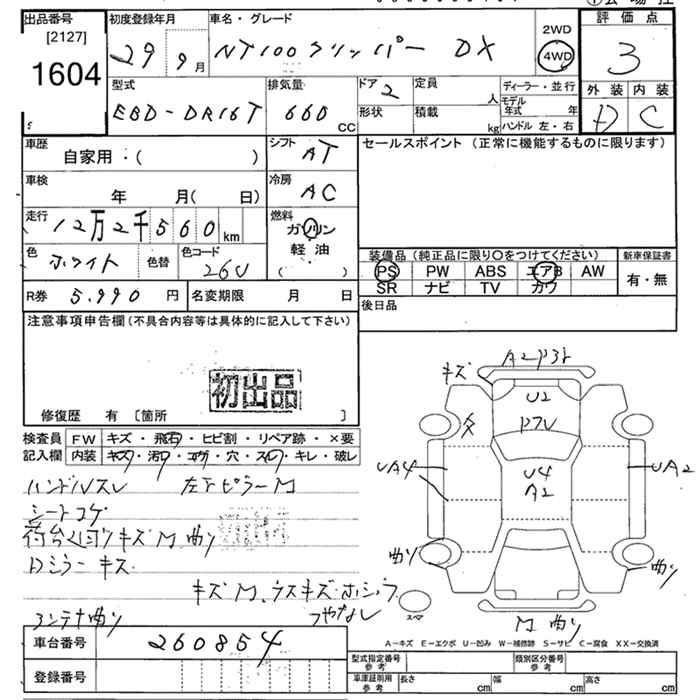 出品番号
[2127]
1604
初度登録年月
29 9月
車名・グレード
NT100クリッパー DX
2WD
4WD
評価点
3
型式
EBD-DR16T
排気量
660
CC
ドア
2
形状
定員
人
積載
kg
ディーラー・並行
モデル年式 年
ハンドル 左・右
外装 内装
D C
車歴
自家用:( )
シフト
AT
セールスポイント (正常に機能するものに限ります)
車検
年 月( 日)
冷房
AC
走行
12万2千560km
燃料
ガソリン
軽油
( )
色
ホワイト
色替
色コード
26U
装備品 (純正品に限り〇をつけてください)
新車保証書
PS PW ABS エアB AW
SR ナビ TV カワ
有・無
R券 5.990 円
名変期限 月 日
後日品
注意事項申告欄(不具合内容等は具体的に記入して下さい)
初出品
修復歴 有 [箇所 ]
検査員
記入欄
FW キズ・飛石・ヒビ割・リペア跡・×要
内装 キズ・汚れ・コゲ・穴・スレ・キレ・破レ
ハンドルスレ 左下ピラーM
シートコゲ
荷台 キズM 曲り
Dミラーキズ
キズM、ウスキズ・ホシ
ツヤなし
アンテナ曲り
キズ
A2
U2
U4
A2
UA4
UA2
曲り
曲り
M 曲り
スペア
A-キズ E-エクボ U-凹み W-補修跡 S-サビ C-腐食 XX-交換済
車台番号 260854
登録番号
型式指定番号
参考
類別区分番号
参考
車庫証明用
参考
長さ cm
幅 cm
高さ cm